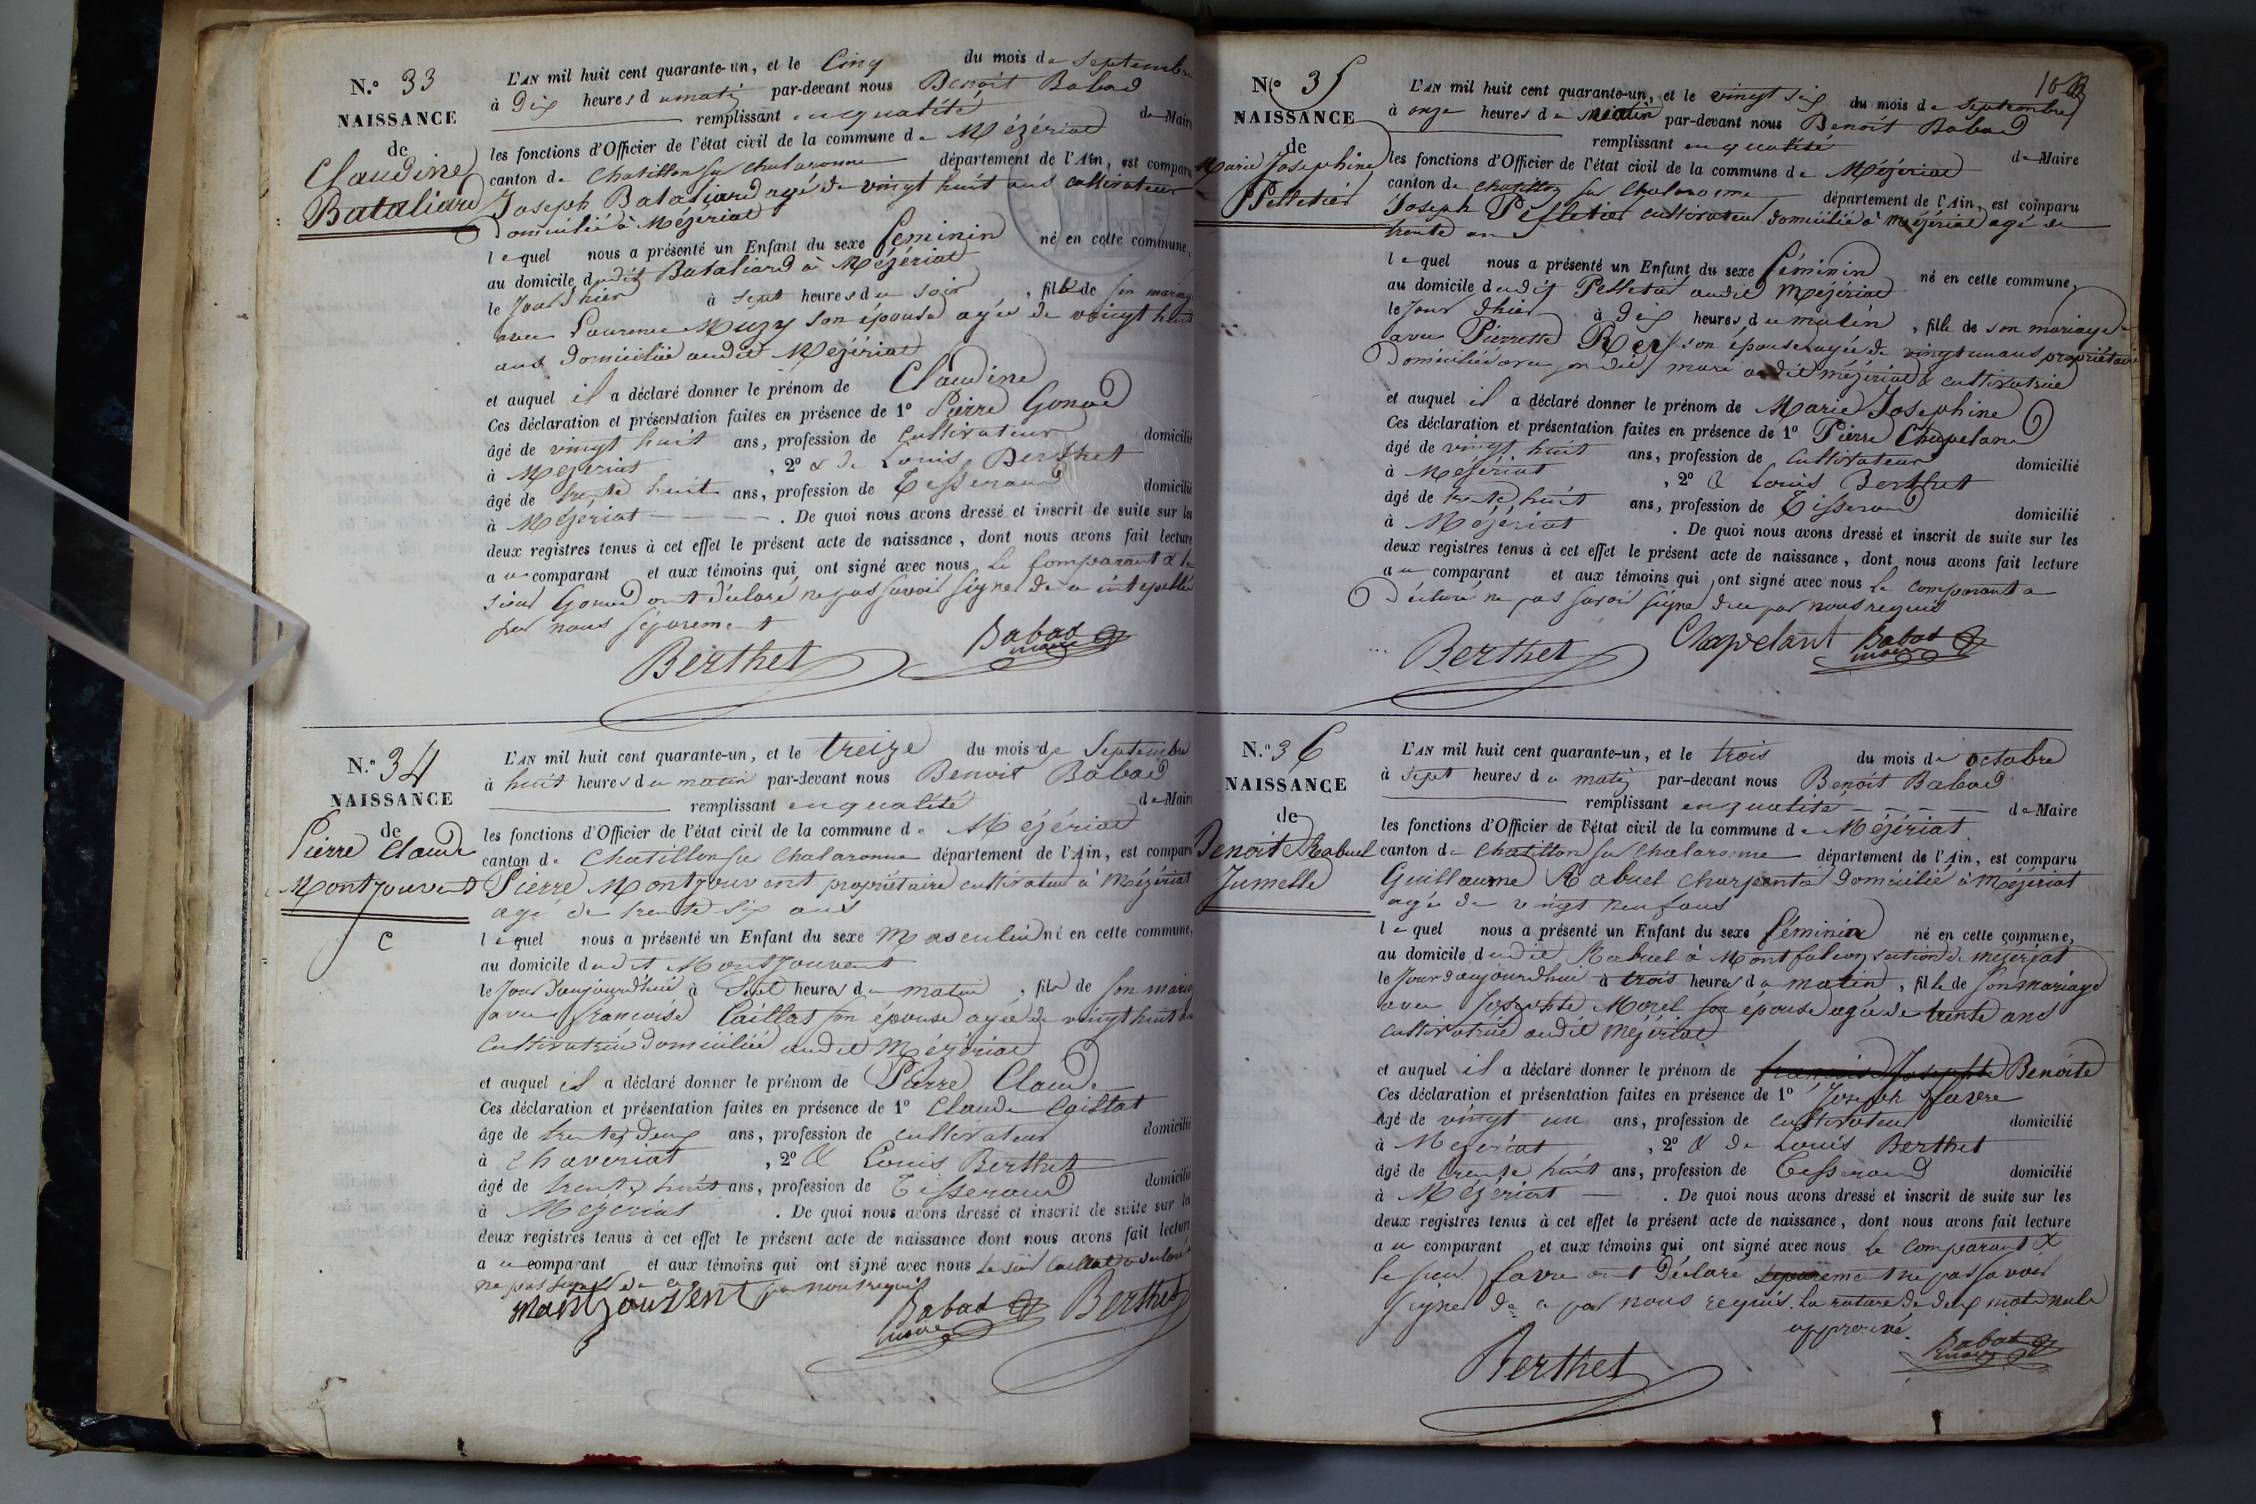 N.º 33
NAISSANCE
de
Claudine
Bataliard
L'AN mil huit cent quarante-un, et le Cinq du mois de Septembre
à Dix heures du matin par-devant nous Benoit Babad
remplissant en qualité de Maire
les fonctions d'Officier de l'état civil de la commune de Mézériat
canton de Chatillon sur Chalaronne département de l'Ain, est comparu
Joseph Bataliard agé de vingt huit ans cultivateur
domicilié à Mézériat
lequel nous a présenté un Enfant du sexe feminin né en cette commune,
au domicile dudit Bataliard à Mézériat
le Jour d'hier à sept heures du soir, fille de son mariage
avec Laurence Muzy son épouse agée de vingt huit
ans domiciliée audit Mézériat
et auquel il a déclaré donner le prénom de Claudine
Ces déclaration et présentation faites en présence de 1º Pierre Gonod
âgé de vingt huit ans, profession de cultivateur domicilié
à Mézériat, 2º & de Louis Berthet
âgé de trente huit ans, profession de Tisserand domicilié
à Mézériat. De quoi nous avons dressé et inscrit de suite sur les
deux registres tenus à cet effet le présent acte de naissance, dont nous avons fait lecture
au comparant et aux témoins qui ont signé avec nous le Comparant & le
sieur Gonod ont déclaré ne pas savoir signer de ce interpellés
par nous séparement
Berthet Babad maire
N.º 34
NAISSANCE
de
Pierre Claude
Montjouvent
C
L'AN mil huit cent quarante-un, et le treize du mois de Septembre
à huit heures du matin par-devant nous Benoit Babad
remplissant en qualité de Maire
les fonctions d'Officier de l'état civil de la commune de Mézériat
canton de Chatillon sur Chalaronne département de l'Ain, est comparu
Pierre Montjouvent propriétaire cultivateur à Mézériat
agé de trente six ans
lequel nous a présenté un Enfant du sexe Masculin né en cette commune,
au domicile dudit Montjouvent
le Jour d'aujourd'hui à Sept heures du matin, fils de son mariage
avec françoise Caillat son épouse agée de vingt huit ans
Cultivatrice domiciliée audit Mézériat
et auquel il a déclaré donner le prénom de Pierre Claude
Ces déclaration et présentation faites en présence de 1º Claude Caillat
âge de trente deux ans, profession de cultivateur domicilié
à Chaveriat, 2º & Louis Berthet
âgé de trente huit ans, profession de Tisserand domicilié
à Mézériat. De quoi nous avons dressé et inscrit de suite sur les
deux registres tenus à cet effet le présent acte de naissance dont nous avons fait lecture
au comparant et aux témoins qui ont signé avec nous le sieur Caillat a déclaré
ne pas signer de ce par nous requis
montjouvent Babad maire Berthet
N.º 35
NAISSANCE
de
Marie Josephine
Pelletier
L'AN mil huit cent quarante-un, et le vingt six du mois de Septembre
à onze heures du matin par-devant nous Benoit Babad
remplissant en qualité de Maire
les fonctions d'Officier de l'état civil de la commune de Mézériat
canton de Chatillon sur Chalaronne département de l'Ain, est comparu
Joseph Pelletier cultivateur domicilié à Mézériat agé de
trente ans
lequel nous a présenté un Enfant du sexe féminin né en cette commune,
au domicile dudit Pelletier audit Mézériat
le Jour d'hier à Dix heures du matin, fille de son mariage
avec Pierrette Rey son épouse agée de vingt un ans propriétaire
domiciliée avec son dit mari audit mézériat & cultivatrice
et auquel il a déclaré donner le prénom de Marie Josephine
Ces déclaration et présentation faites en présence de 1º Pierre Chapeland
âgé de vingt huit ans, profession de Cultivateur domicilié
à Mézériat, 2º & Louis Berthet
âgé de trente huit ans, profession de Tisserand domicilié
à Mézériat. De quoi nous avons dressé et inscrit de suite sur les
deux registres tenus à cet effet le présent acte de naissance, dont nous avons fait lecture
au comparant et aux témoins qui ont signé avec nous le comparant a
déclaré ne pas savoir signé de ce par nous requis
Berthet Chapelant Babad maire
N.º 36
NAISSANCE
de
Benoite Rabuel
Jumelle
L'AN mil huit cent quarante-un, et le trois du mois de octobre
à sept heures du matin par-devant nous Benoit Babad
remplissant en qualité de Maire
les fonctions d'Officier de l'état civil de la commune de Mézériat
canton de Chatillon sur Chalaronne département de l'Ain, est comparu
Guillaume Rabuel charpentier domicilié à Mézériat
agé de vingt neuf ans
lequel nous a présenté un Enfant du sexe féminin né en cette commune,
au domicile dudit Rabuel à Montfalcon section de mézériat
le Jour d'aujourdhui à trois heures du matin, fille de son mariage
avec Josephte Morel son épouse agée de trente ans
cultivatrice audit Mézériat
et auquel il a déclaré donner le prénom de françoise Josephte Benoite
Ces déclaration et présentation faites en présence de 1º Joseph favre
âgé de vingt un ans, profession de cultivateur domicilié
à Mézériat, 2º & de Louis Berthet
âgé de trente huit ans, profession de Tisserand domicilié
à Mézériat. De quoi nous avons dressé et inscrit de suite sur les
deux registres tenus à cet effet le présent acte de naissance, dont nous avons fait lecture
au comparant et aux témoins qui ont signé avec nous le comparant &
le sieur favre ont déclaré séparement ne pas savoir
signer de ce par nous requis. La rature de deux mots nuls
approuvé.
Berthet Babad maire